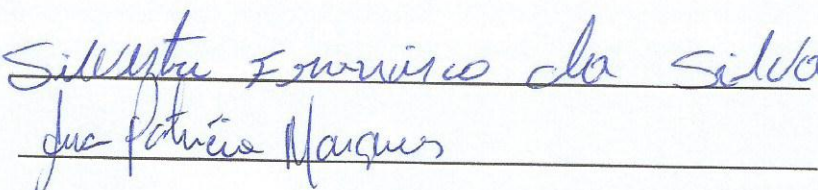 Silvestre Francisco da Silva
Ana Patrícia Marques